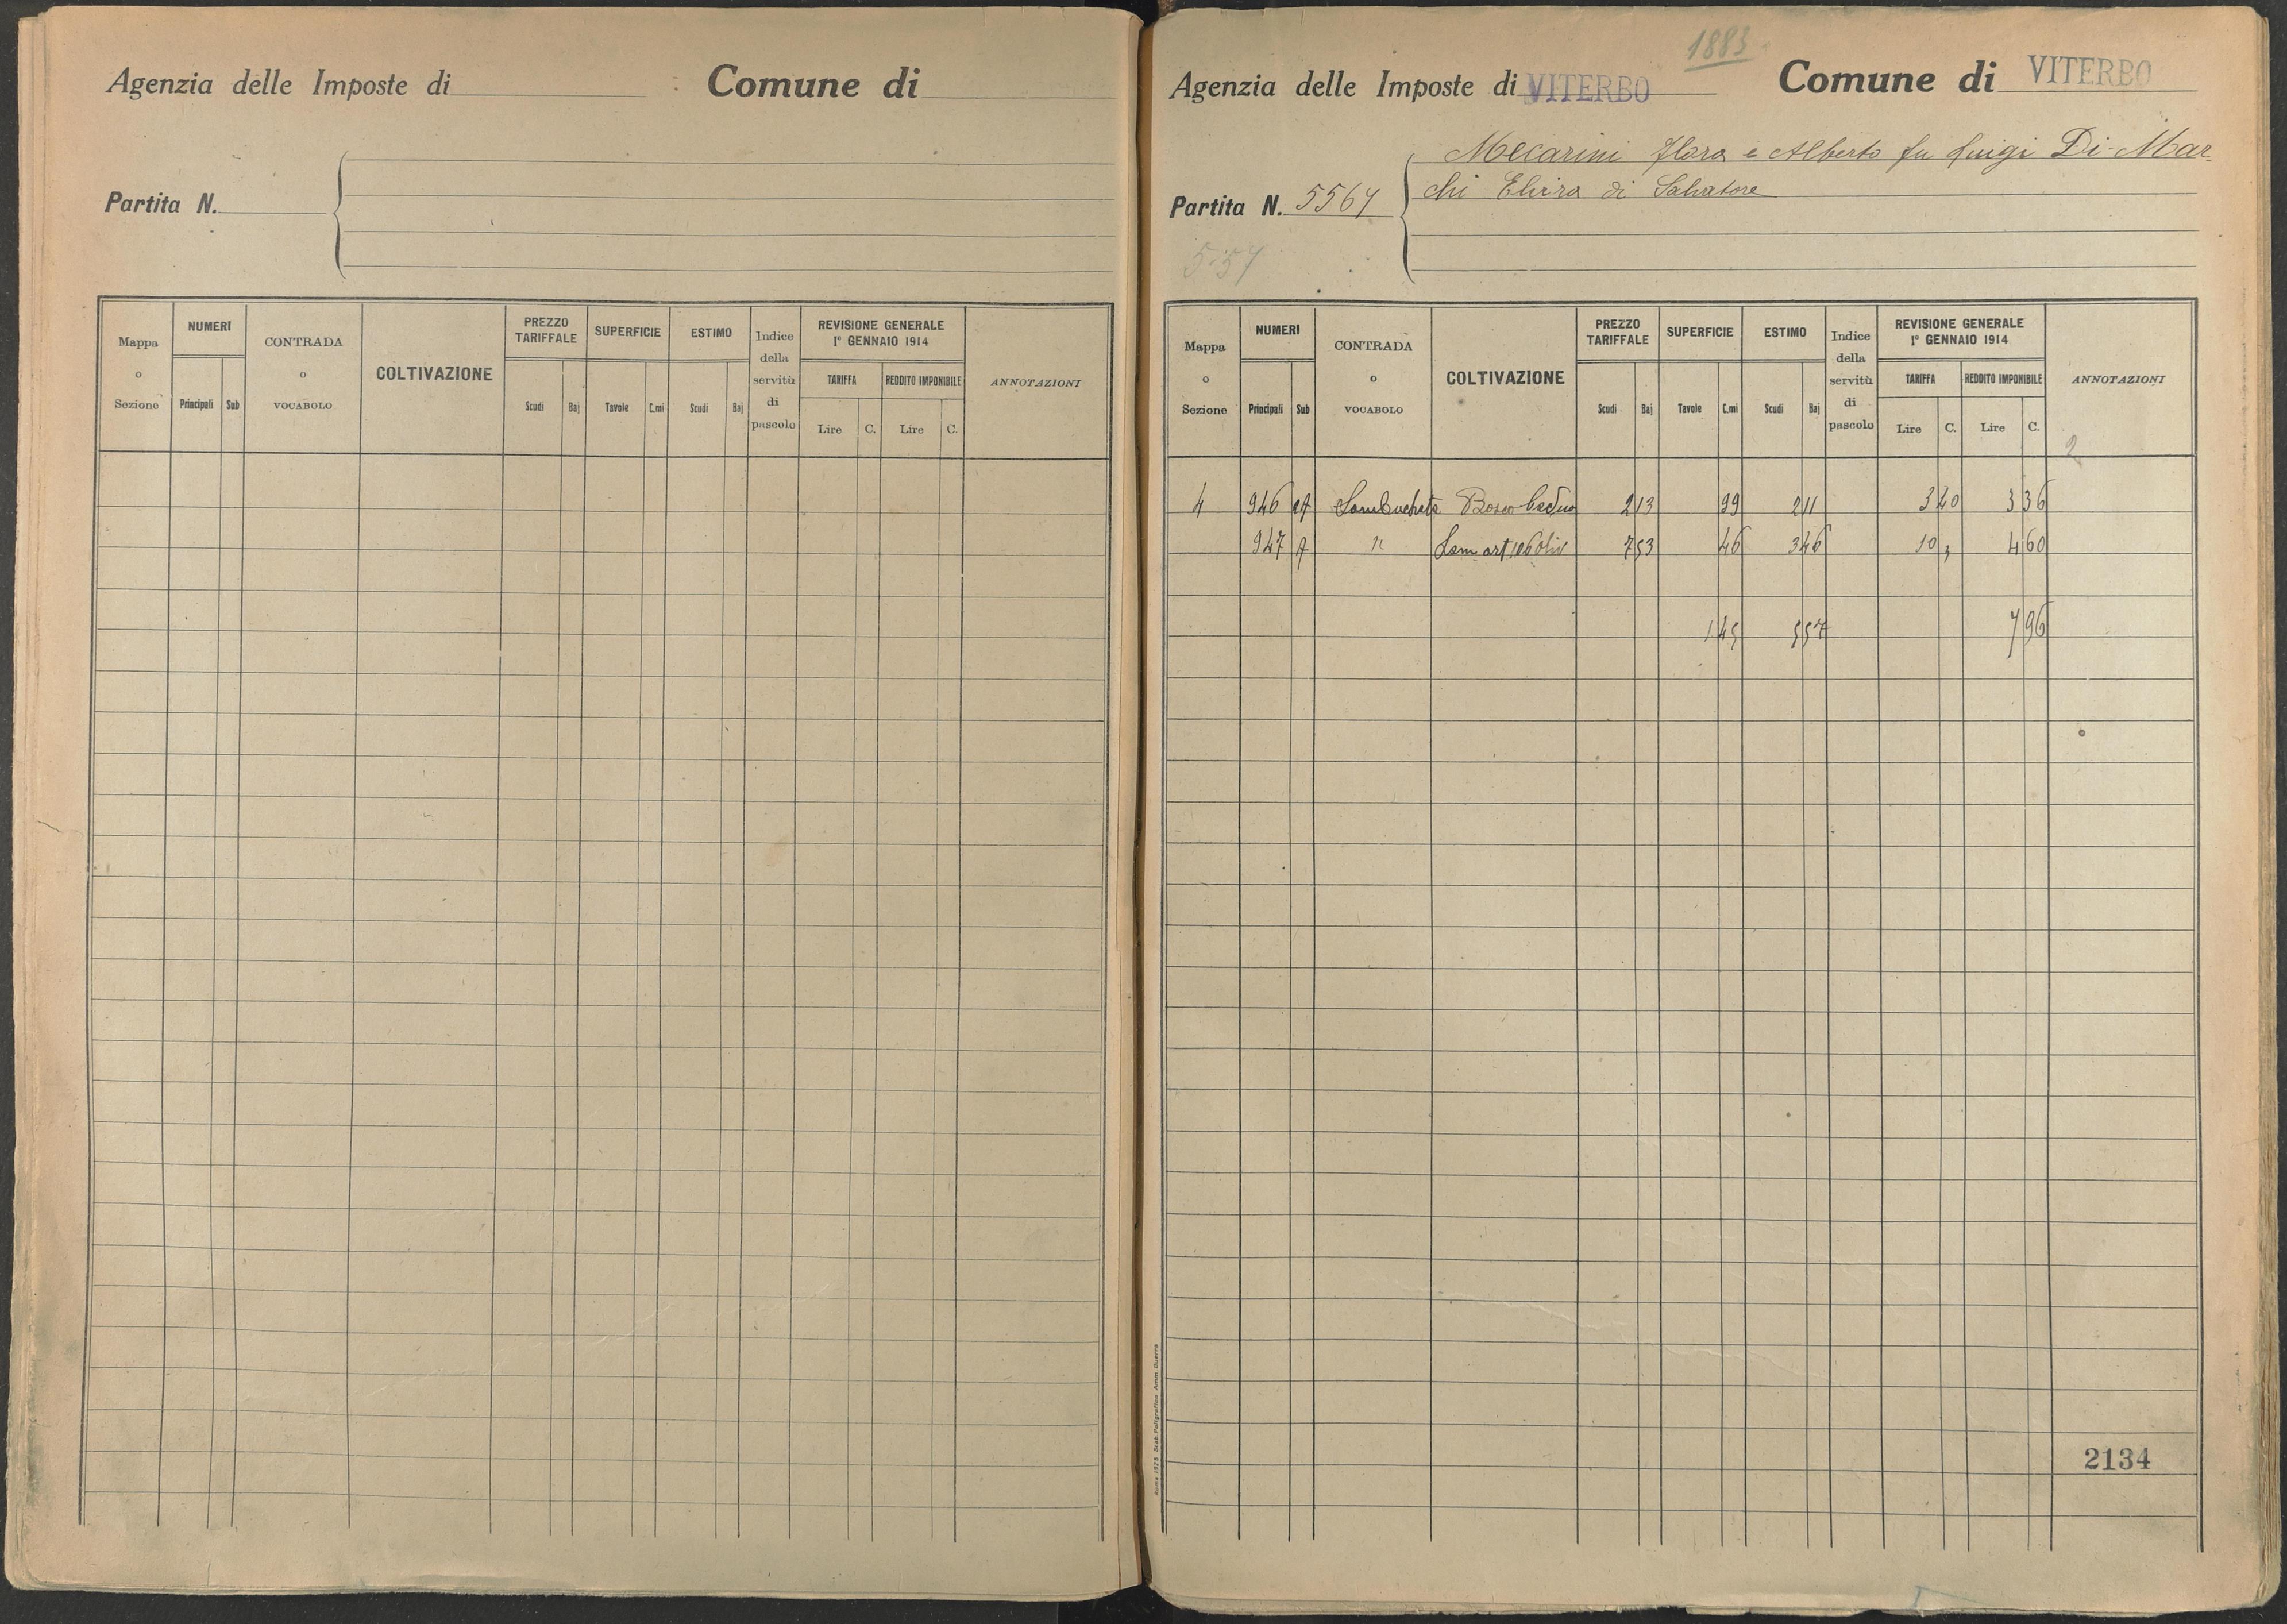 Agenzia delle Imposte di Comune di
Partita N.
Mappa o Sezione NUMERI CONTRADA o VOCABOLO COLTIVAZIONE PREZZO TARIFFALE SUPERFICIE ESTIMO Indice della servitù di pascolo REVISIONE GENERALE 1° GENNAIO 1914 ANNOTAZIONI
TARIFFA REDDITO IMPONIBILE
Principali Sub Scudi Baj Tavole C.mi Scudi Baj Lire C. Lire C.
1883
Agenzia delle Imposte di VITERBO Comune di VITERBO
Mecarini Flora e Alberto fu Luigi Di Mar-
chi Elvira di Salvatore
Partita N. 5564
557
Mappa o Sezione NUMERI CONTRADA o VOCABOLO COLTIVAZIONE PREZZO TARIFFALE SUPERFICIE ESTIMO Indice della servitù di pascolo REVISIONE GENERALE 1° GENNAIO 1914 ANNOTAZIONI
TARIFFA REDDITO IMPONIBILE
Principali Sub Scudi Baj Tavole C.mi Scudi Baj Lire C. Lire C.
2
4 946 A Sambucheta Bosco Ceduo 2 13 99 2 11 3 40 3 36
947 A " 7 53 46 3 46 10 4 60
1 45 5 57 7 96
2134
Roma 1928 Stab. Poligrafico Amm. Guerra